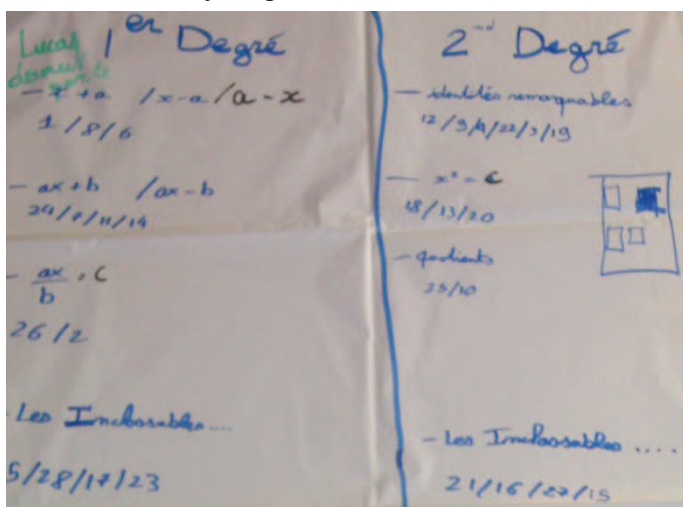 Lucas
1er Degré
- x+a /x-a/a-x
1/8/6
- ax+b /ax-b
24/7/11/14
- ax/b = c
26/2
- Les Inclassables....
5/28/17/23
2nd Degré
- identités remarquables
12/9/4/22/3/19
- x² = c
18/13/20
- quotients
25/10
- Les Inclassables ....
21/16/27/15